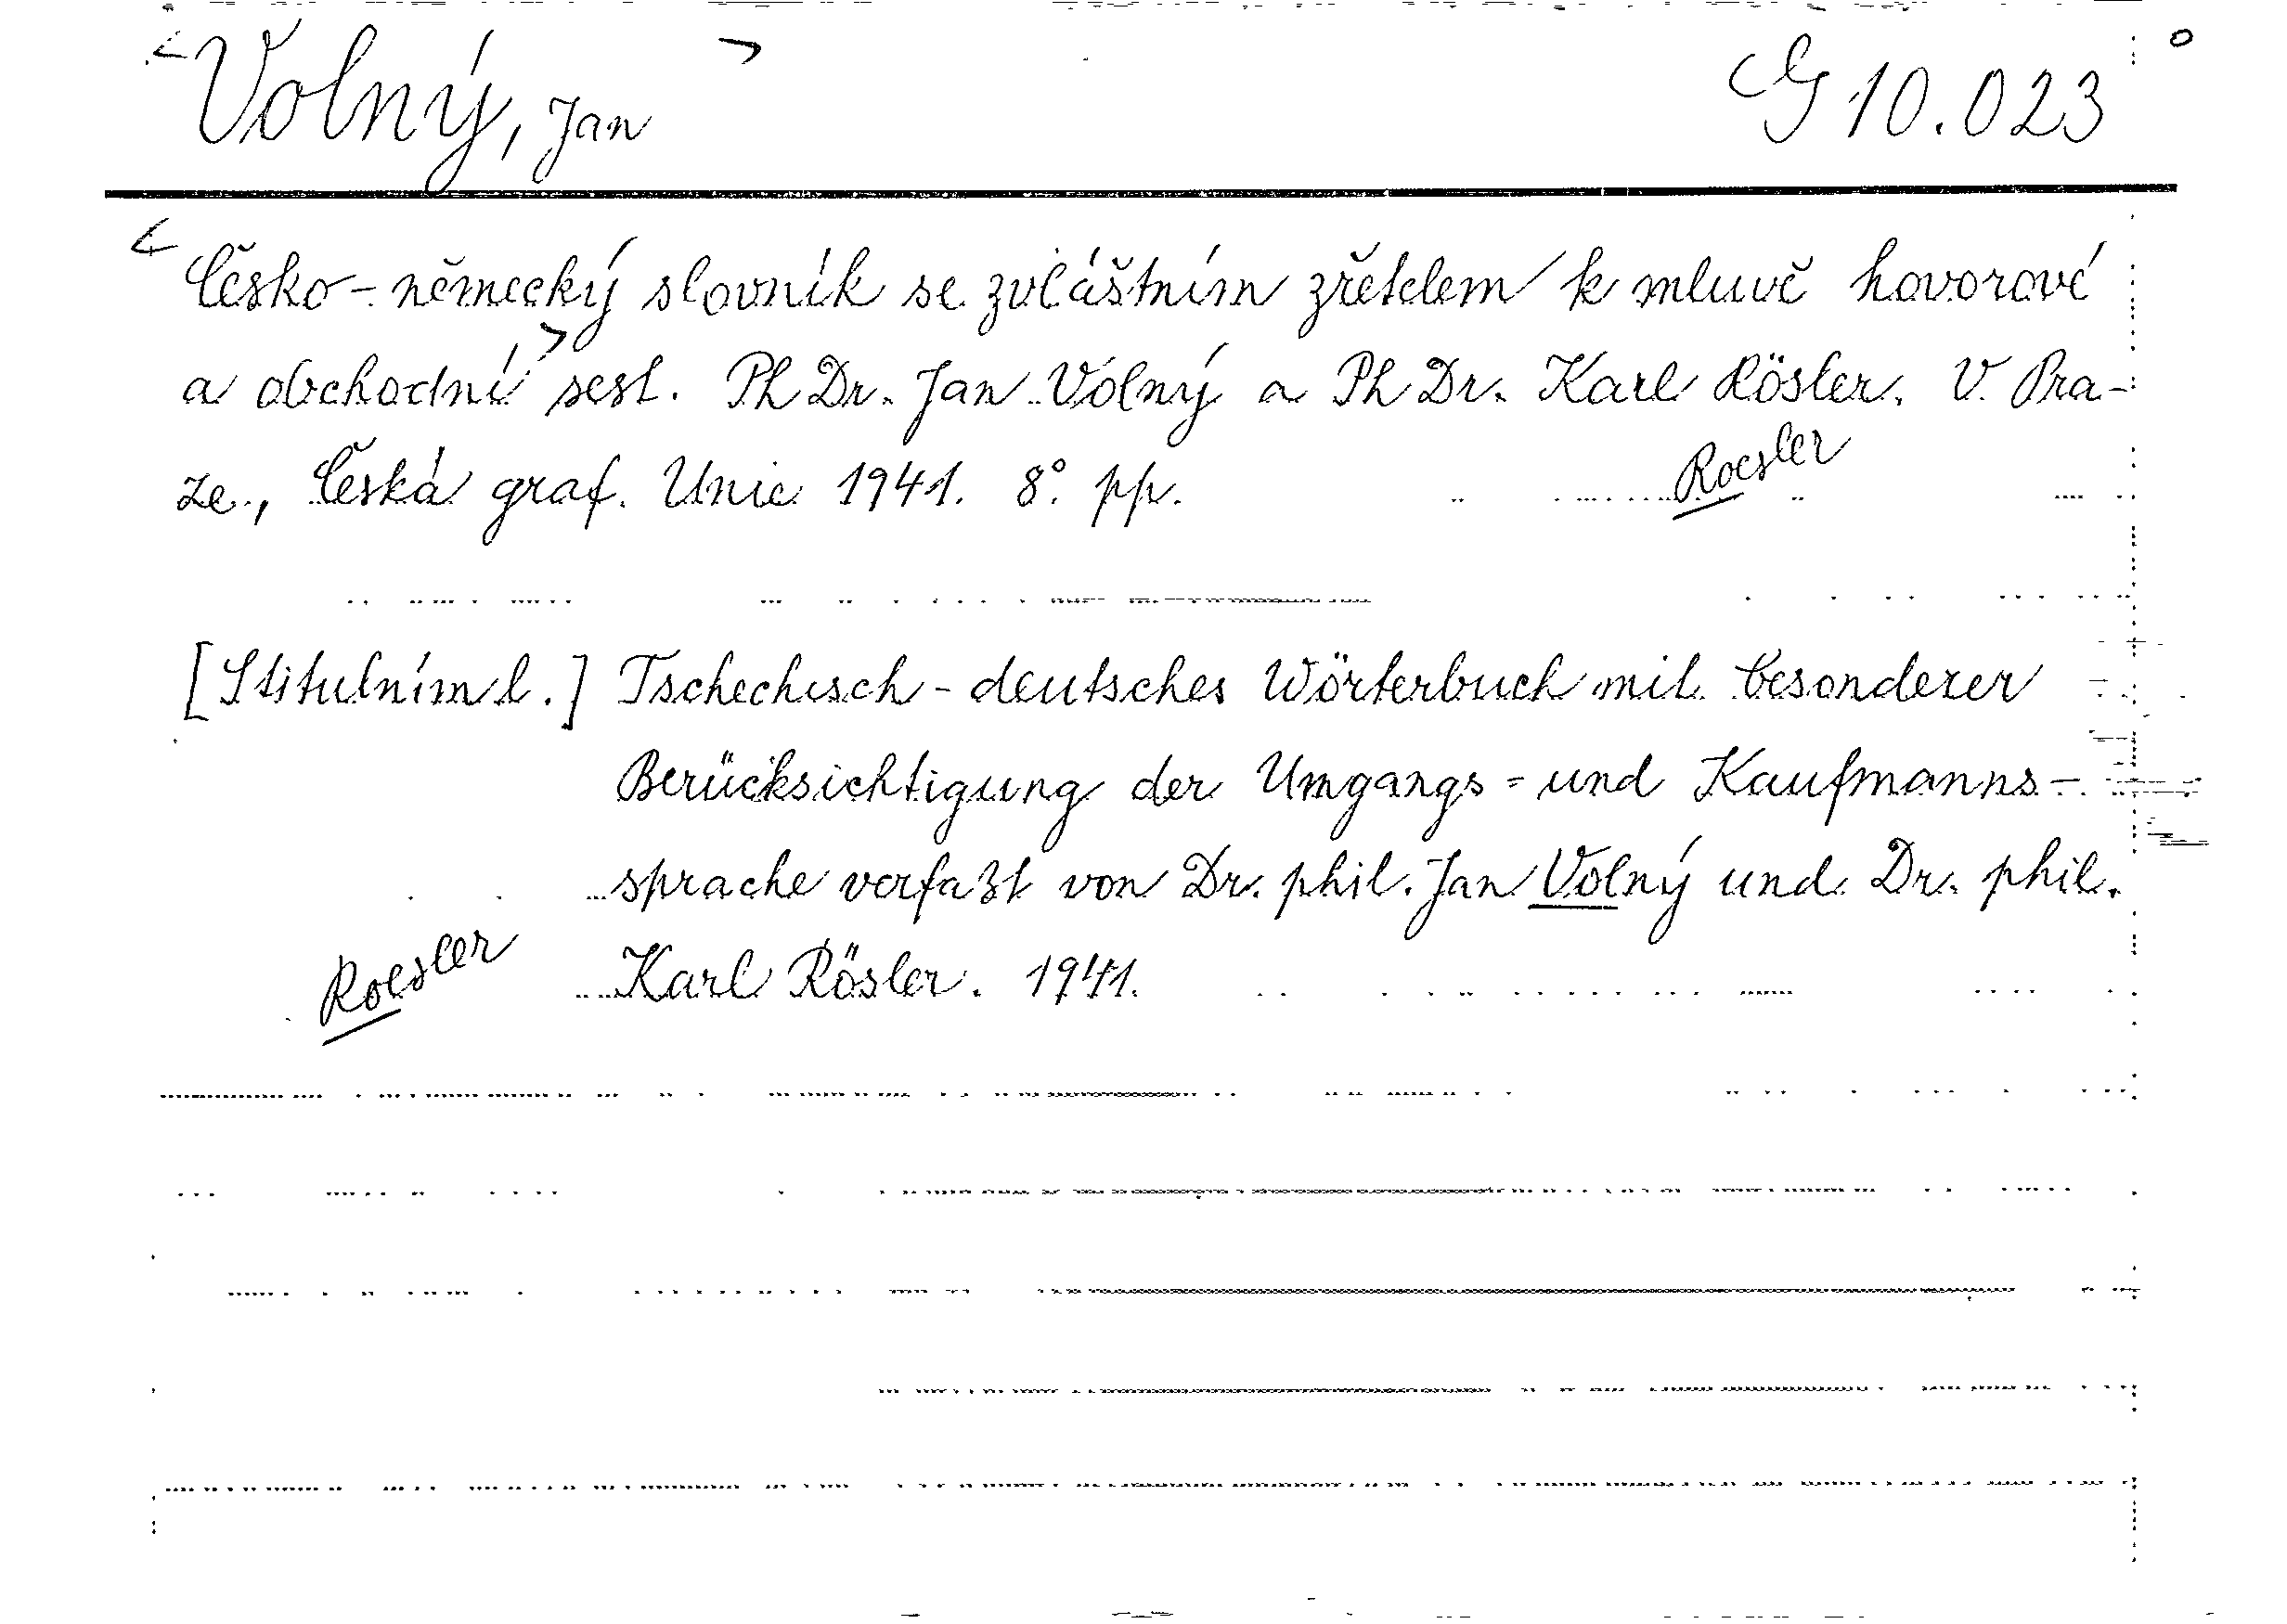 <Volný, Jan> G 10.023
<Česko-německý slovník se zvláštním zřetelem k mluvě hovorové
a obchodní> sest. PhDr. Jan Volný a PhDr. Karl Rösler. V Pra-
ze, Česká graf. Unie 1941. 8° pp. Roesler
[S titulním l.] Tschechisch-deutsches Wörterbuch mit besonderer
Berücksichtigung der Umgangs- und Kaufmanns-
sprache verfaßt von Dr. phil. Jan Volný und Dr. phil.
Roesler Karl Rösler. 1941.